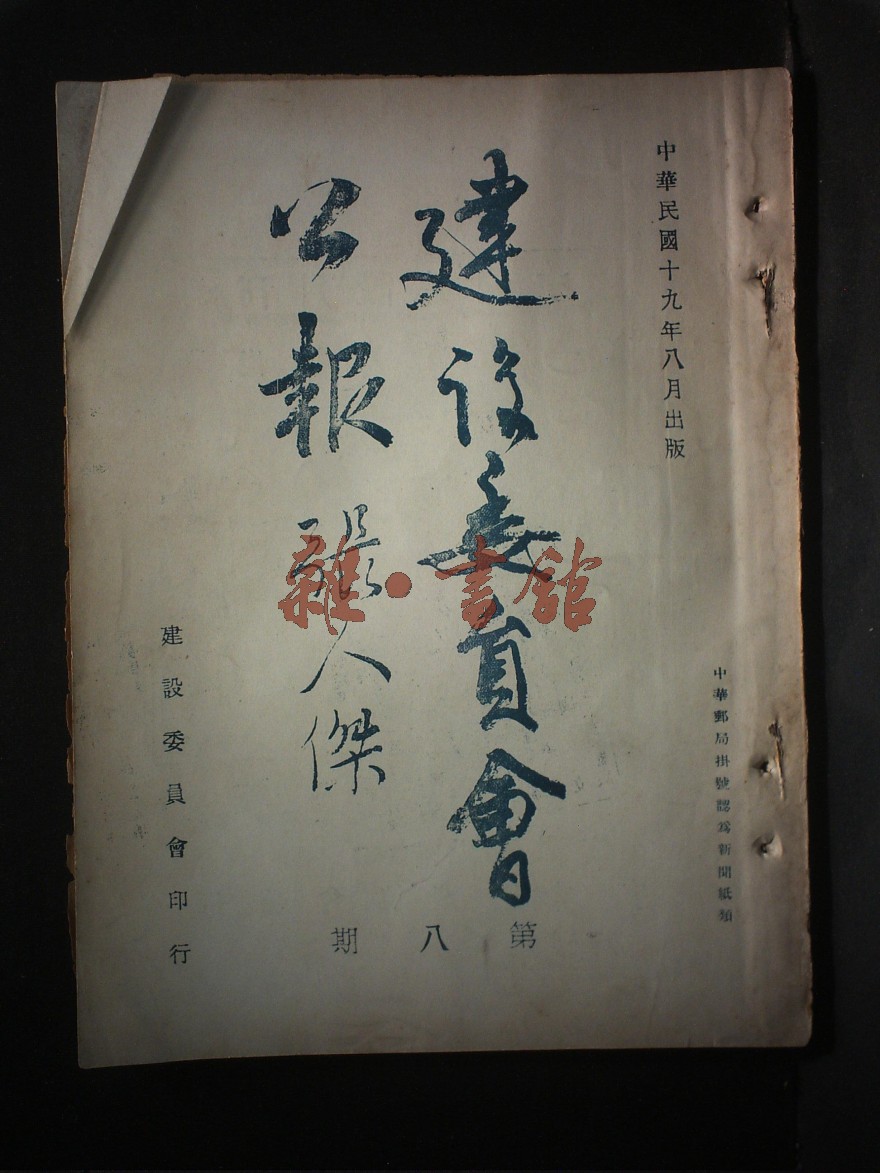 中華民國十九年八月出版
中華郵局掛號認爲新聞紙類
建設委員會
公報
張人傑
第八期
建設委員會印行
雜·書館